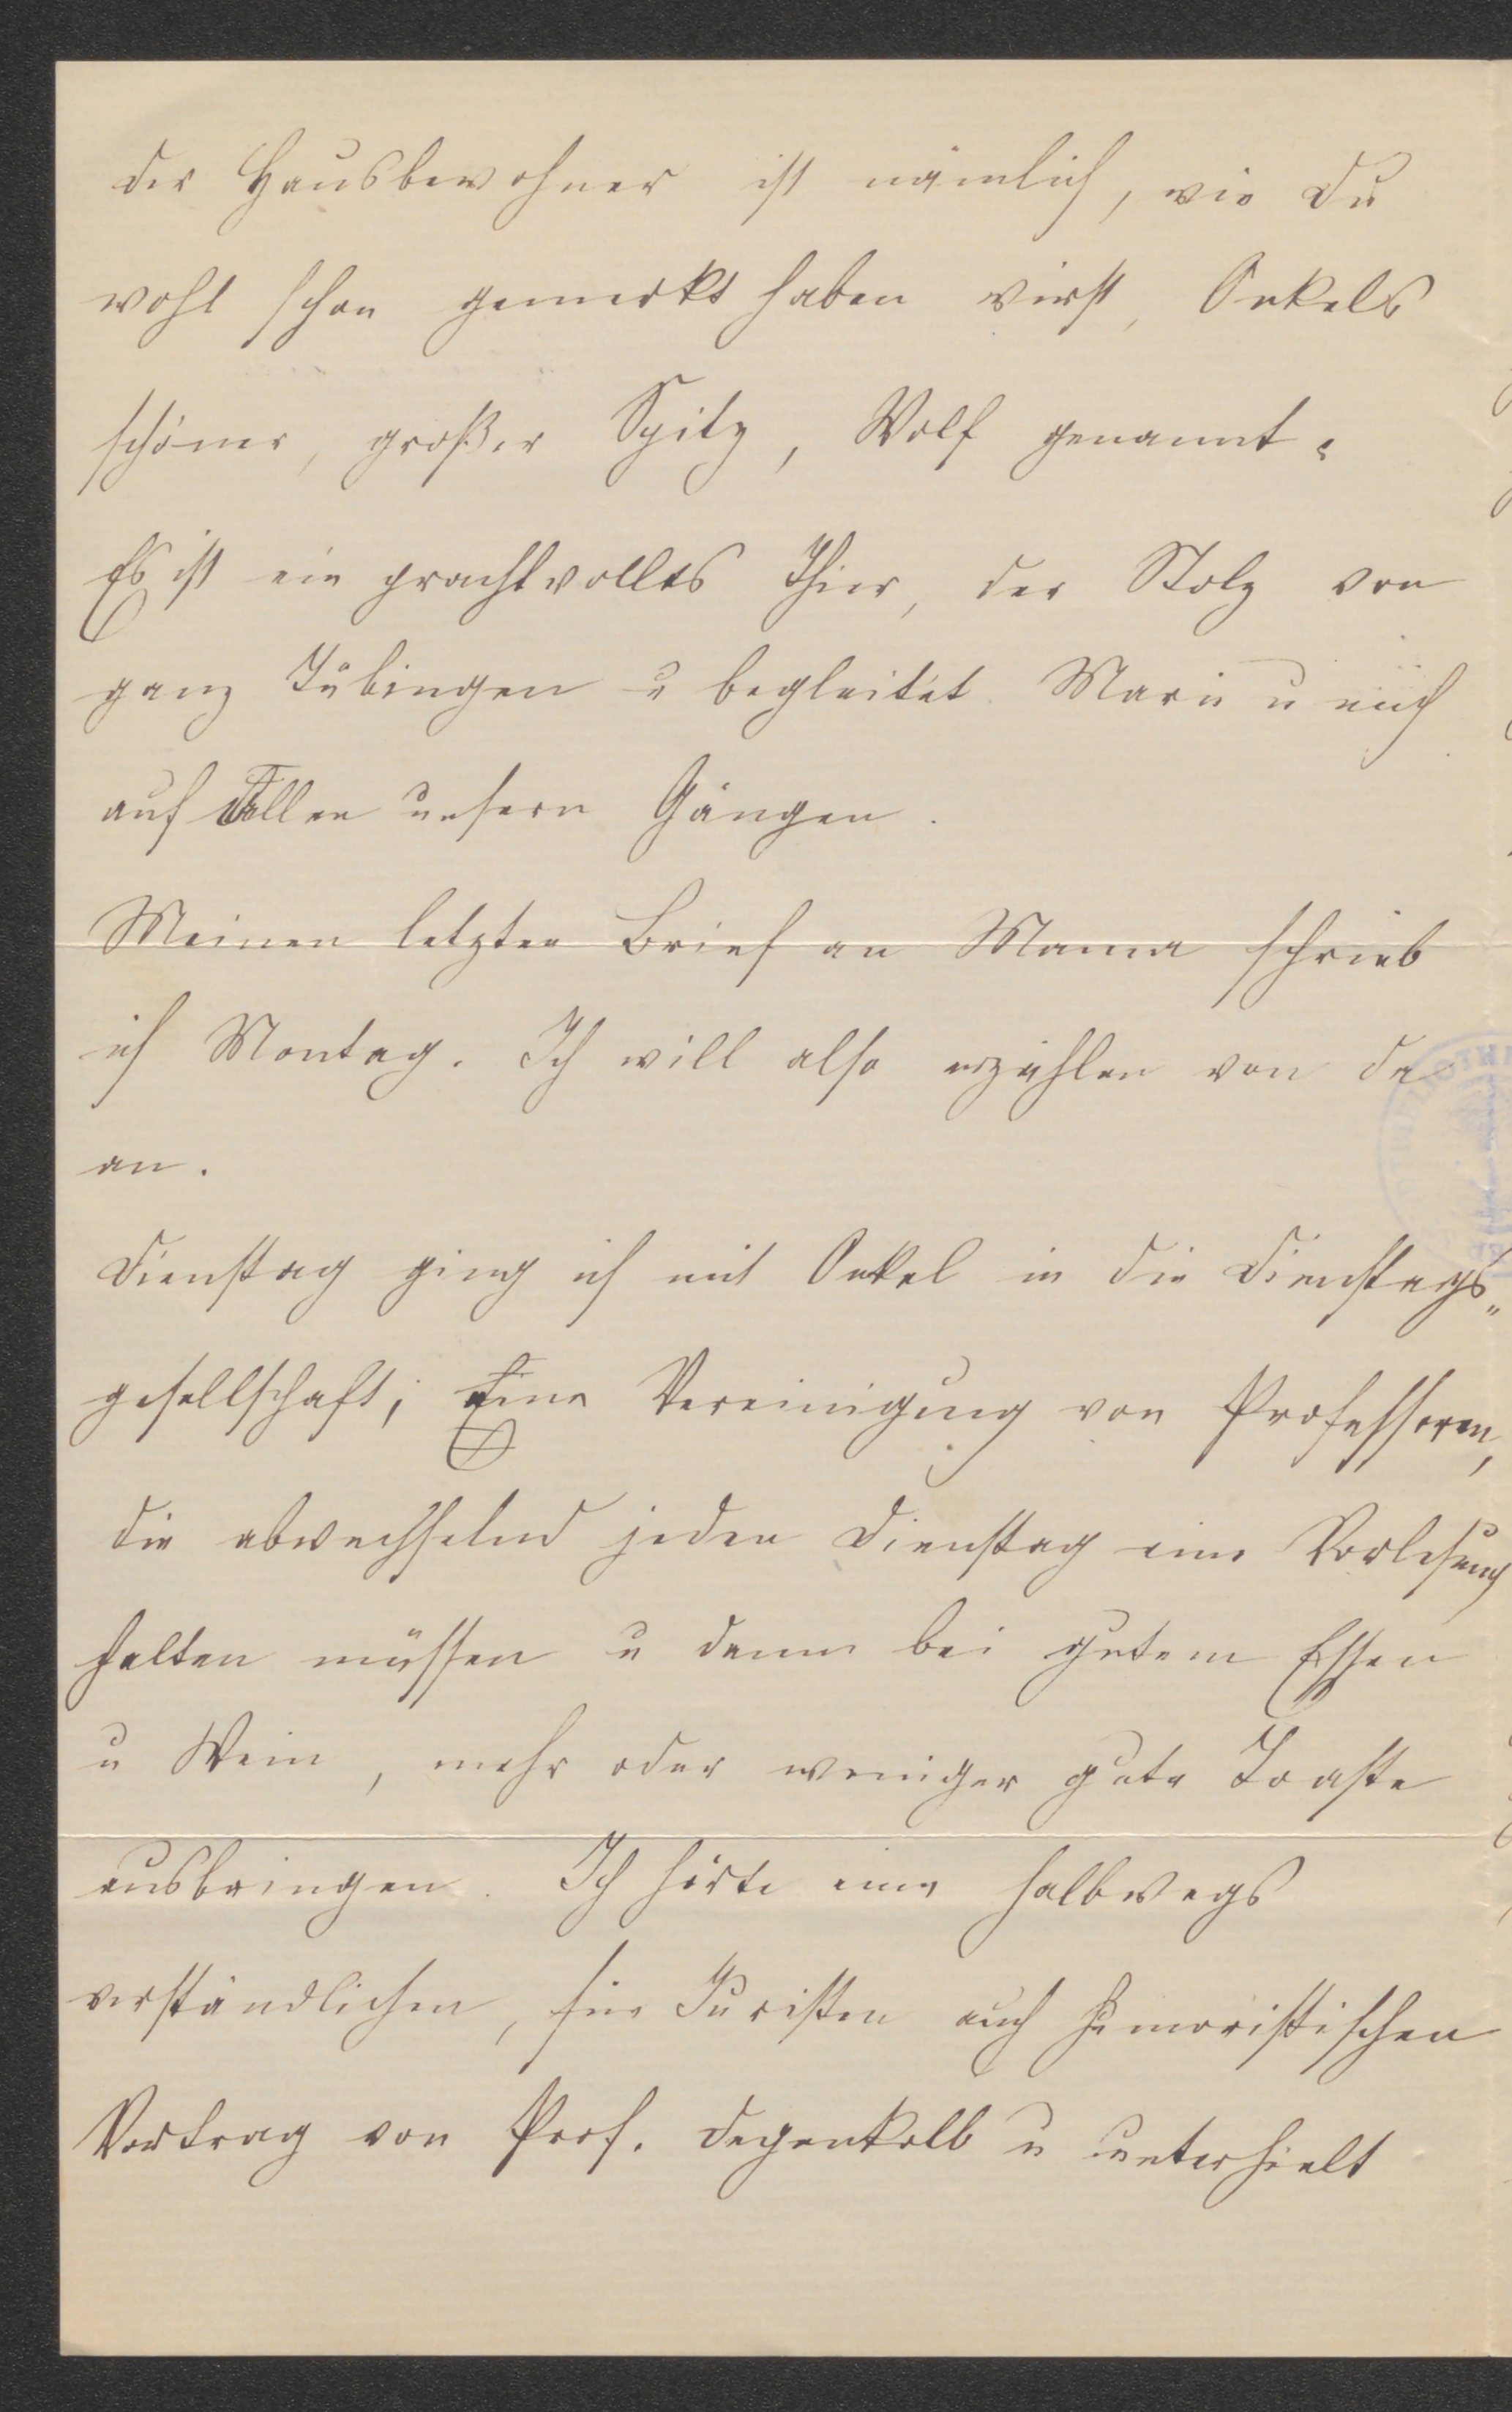 der Hausbewohner ist nämlich, wie Du
wohl schon gemerkt haben wirst, Onkels
schöner, großer Spitz, Wolf genannt.
Es ist ein prachtvolles Thier, der Stolz von
ganz Tübingen u begleitet Marie u mich
auf allen unsern Gängen.
Meinen letzten Brief an Mama schrieb
ich Montag. Ich will also erzählen von da
an.
Dienstag ging ich mit Onkel in die Dienstags„
gesellschaft; eine Vereinigung von Professoren,
die abwechselnd jeden Dienstag eine Vorlesung
halten müssen u dann bei gutem Essen
u Wein, mehr oder weniger gute Toaste
ausbringen. Ich hörte einen halbwegs
verständlichen, für Juristen auch humoristischen
Vortrag von Prof. Degenkolb u unterhielt